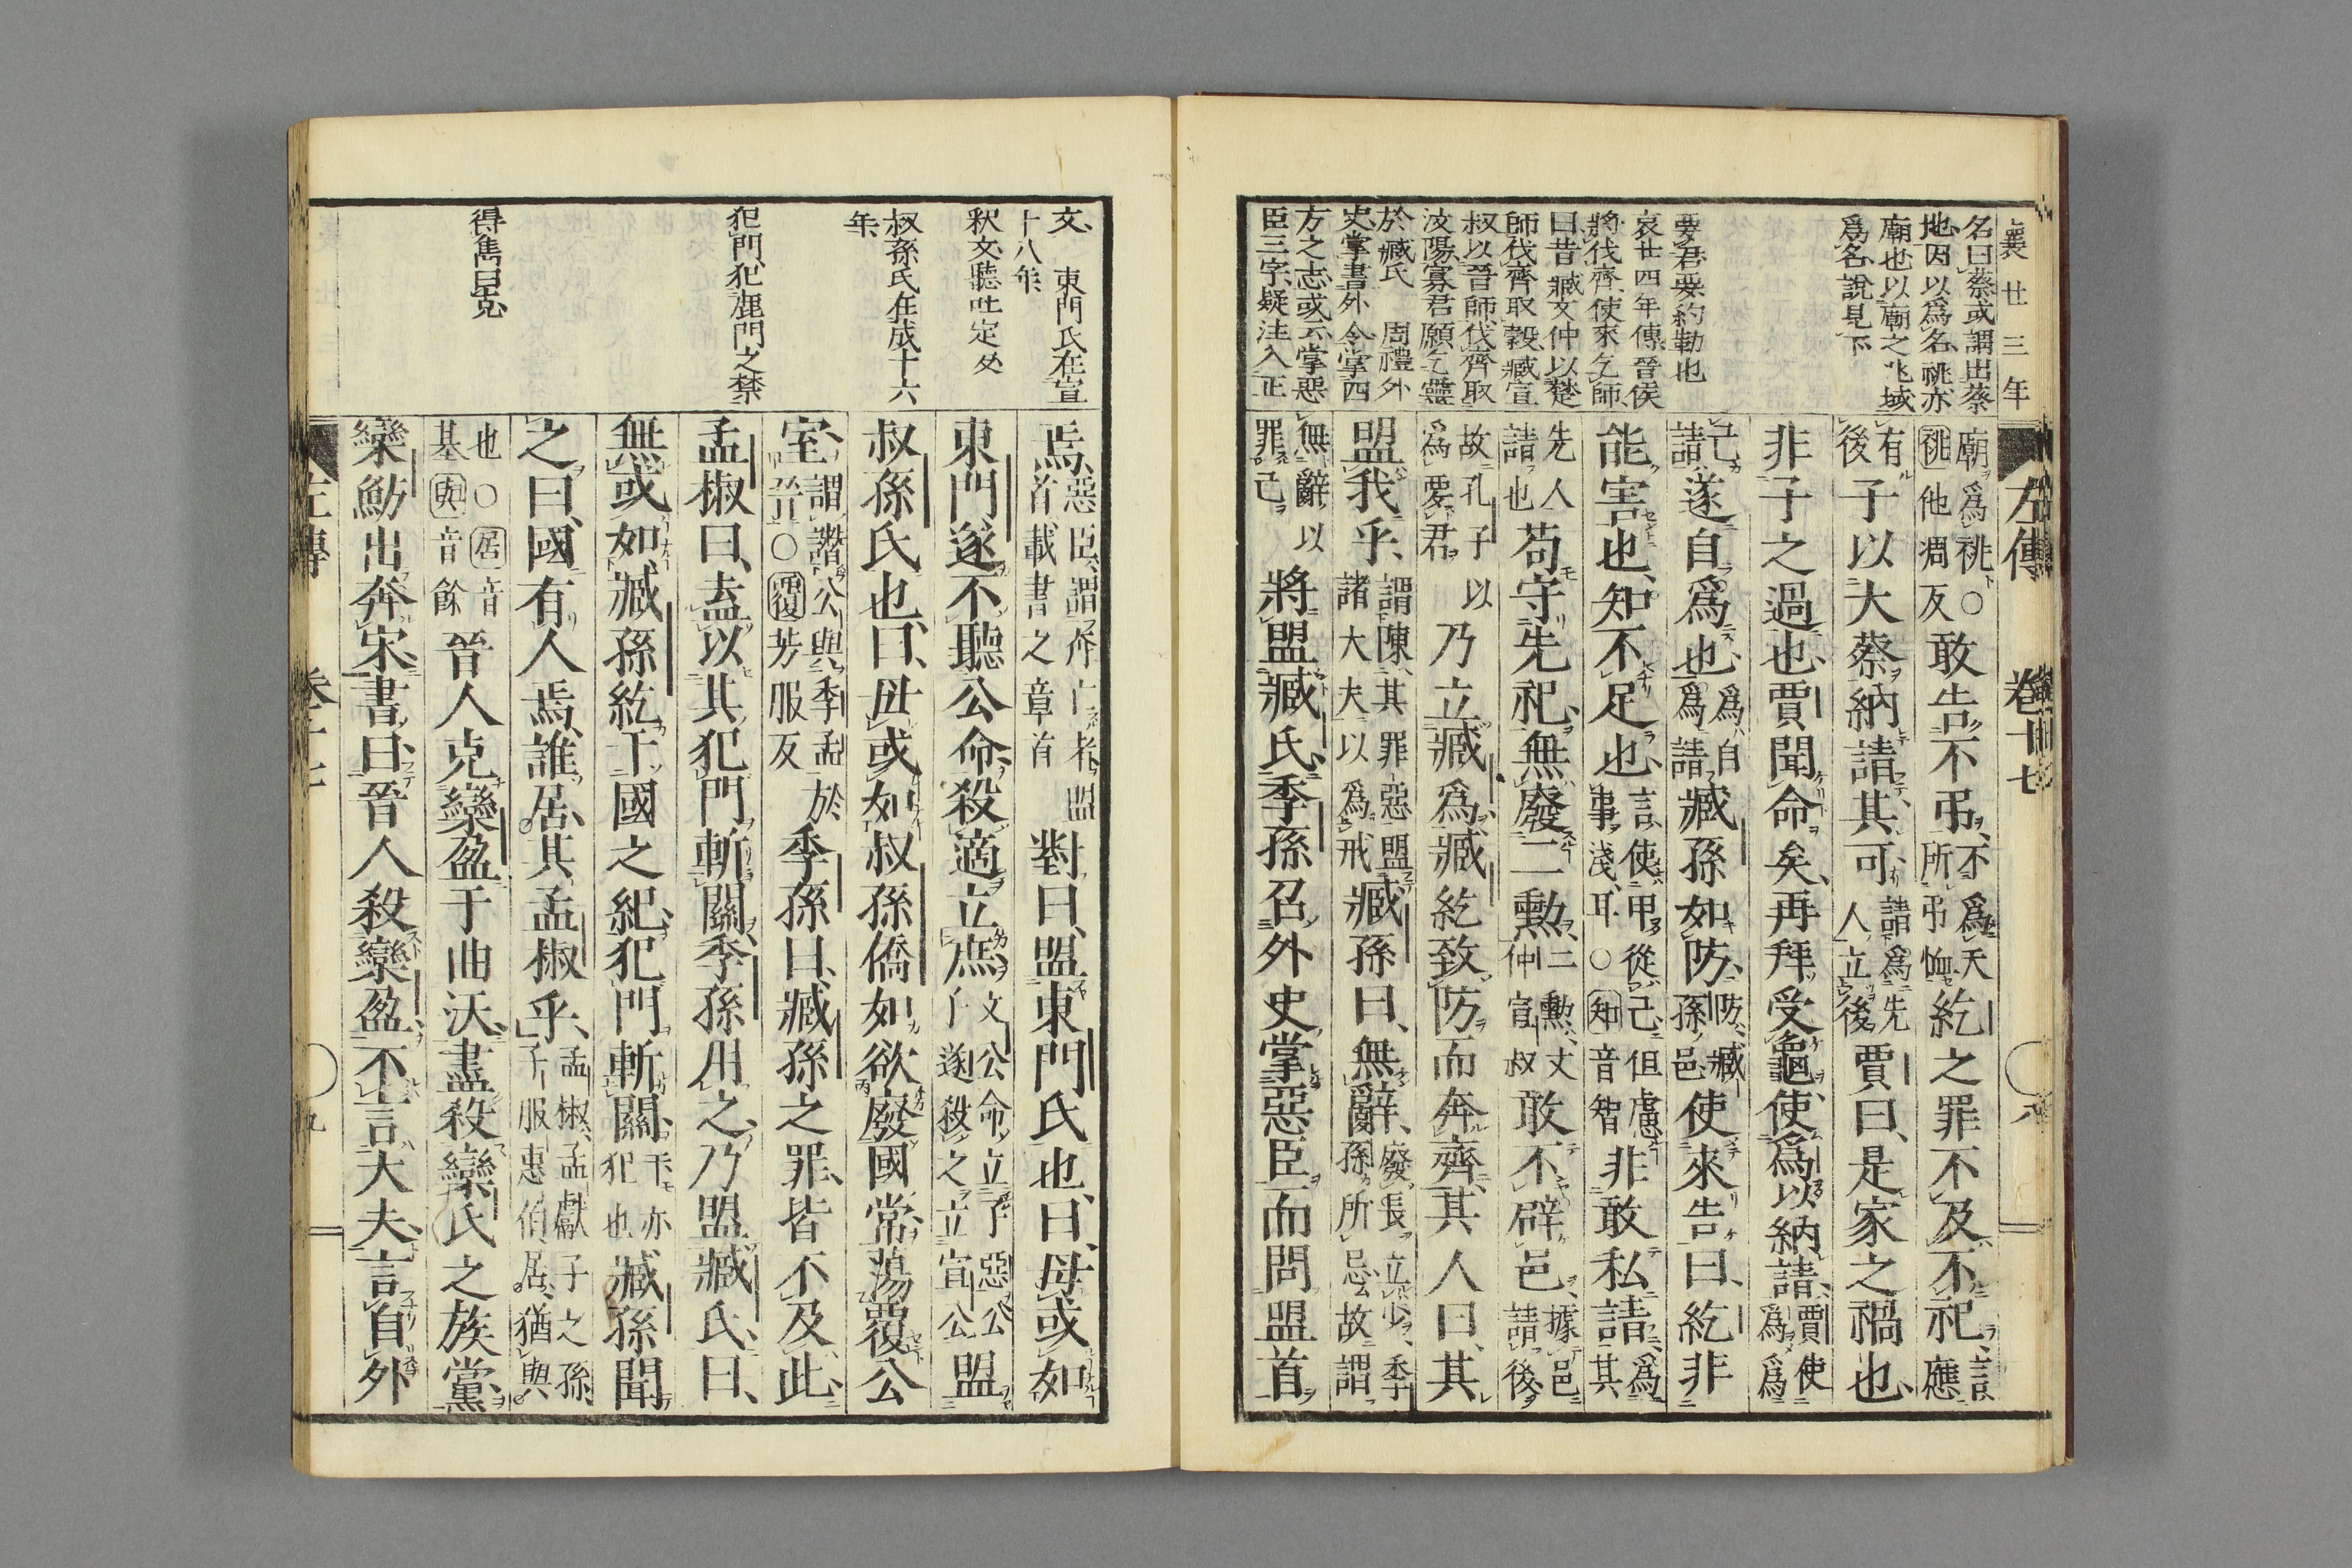 襄廿三年
名曰蔡或謂出蔡
地因以爲名祧亦
廟也以廟之兆域
爲名說見下
要君要約勒也
哀廿四年傳晉侯
將伐齊使來乞師
曰昔臧文仲以楚
師伐齊取穀臧宣
叔以晉師伐齊取
汶陽寡君願乞靈
於臧氏 周禮外
史掌書外令掌四
方之志或不掌惡
臣三字疑注入正
左傳 卷十七 八
廟爲祧○祧他凋反敢告不弔不爲天所弔恤紇之罪不及不祀言應
有後子以大蔡納請其可請爲先人立後賈曰是家之禍也
非子之過也賈聞命矣再拜受龜使爲以納請賈使爲爲
己請遂自爲也爲自爲請臧孫如防防臧孫邑使來告曰紇非
能害也知不足也言使甲從己但慮事淺耳○知音智非敢私請爲其
先人請也苟守先祀無廢二勳二勳文仲宣叔敢不辟邑據邑請後
故孔子以爲要君乃立臧爲臧紇致防而奔齊其人曰其
盟我乎謂陳其罪惡盟諸大夫以爲戒臧孫曰無辭廢長立少季孫所忌故謂
無辭以罪己將盟臧氏季孫召外史掌惡臣而問盟首
文 東門氏在宣
十八年
釈文聽吐定反
叔孫氏在成十六
年
犯門犯鹿門之禁
得雋曰克
焉惡臣謂奔亡者盟首載書之章首對曰盟東門氏也曰毋或如
東門遂不聽公命殺適立庶文公命立子惡公子遂殺之立宣公盟
叔孫氏也曰毋或如叔孫僑如欲廢國常蕩覆公
室謂譖公與季孟於晉○覆芳服反季孫曰臧孫之罪皆不及此
孟椒曰盍以其犯門斬關季孫用之乃盟臧氏曰
無或如臧孫紇干國之紀犯門斬關干亦犯也臧孫聞
之曰國有人焉誰居其孟椒乎孟椒孟獻子之孫子服惠伯居猶與
也○居音基與音餘晉人克欒盈于曲沃盡殺欒氏之族黨
欒魴出奔宋書曰晉人殺欒盈不言大夫言自外
左傳 卷十七 九